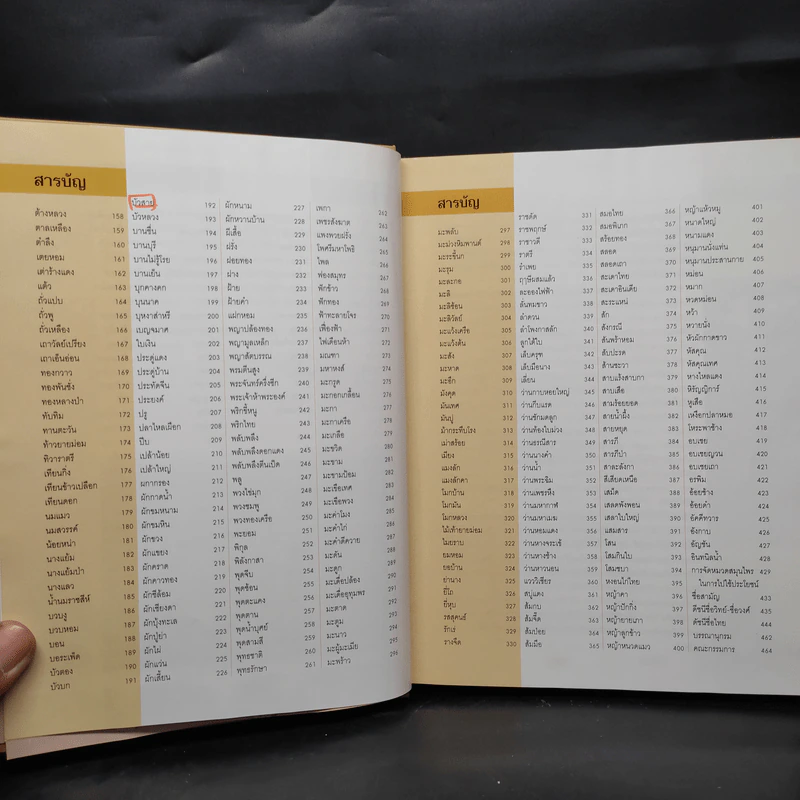 สารบัญ
ต้างหลวง 158
ตาลเหลือง 159
ตำลึง 160
เตยหอม 161
เต่าร้างแดง 162
แต้ว 163
ถั่วแปบ 164
ถั่วพู 165
ถั่วเหลือง 166
เถาวัลย์เปรียง 167
เถาเอ็นอ่อน 168
ทองกวาว 169
ทองพันชั่ง 170
ทองหลางป่า 171
ทับทิม 172
ทานตะวัน 173
ท้าวยายม่อม 174
ทิวาราตรี 175
เทียนกิ่ง 176
เทียนข้าวเปลือก 177
เทียนดอก 178
นมแมว 179
นมสวรรค์ 180
น้อยหน่า 181
นางแย้ม 182
นางแย้มป่า 183
นางแลว 184
น้ำนมราชสีห์ 185
บวบงู 186
บวบหอม 187
บอน 188
บอระเพ็ด 189
บัวตอง 190
บัวบก 191
บัวสาย 192
บัวหลวง 193
บานชื่น 194
บานบุรี 195
บานไม่รู้โรย 196
บานเย็น 197
บุกคางคก 198
บุนนาค 199
บุหงาส่าหรี 200
เบญจมาศ 201
ใบเงิน 202
ประดู่แดง 203
ประดู่บ้าน 204
ประทัดจีน 205
ประยงค์ 206
ปรู 207
ปลาไหลเผือก 208
ปีบ 209
เปล้าน้อย 211
เปล้าใหญ่ 212
ผกากรอง 213
ผักกาดน้ำ 214
ผักขมหนาม 215
ผักขมหิน 216
ผักขวง 217
ผักแขยง 218
ผักคราด 219
ผักดาวทอง 220
ผักชีล้อม 221
ผักเชียงดา 222
ผักบุ้งทะเล 223
ผักปู่ย่า 224
ผักไผ่ 225
ผักแว่น 225
ผักเสี้ยน 226
ผักหนาม 227
ผักหวานบ้าน 228
ผีเสื้อ 229
ฝรั่ง 230
ฝอยทอง 231
ฝาง 232
ฝ้าย 233
ฝ้ายคำ 234
แฝกหอม 235
พญาปล้องทอง 236
พญามูลเหล็ก 237
พญาสัตบรรณ 238
พรมตีนสูง 239
พระจันทร์ครึ่งซีก 240
พระเจ้าห้าพระองค์ 241
พริกขี้หนู 242
พริกไทย 243
พลับพลึง 244
พลับพลึงดอกแดง 245
พลับพลึงตีนเป็ด 246
พลู 247
พวงไข่มุก 248
พวงชมพู 249
พวงทองเครือ 250
พะยอม 251
พิกุล 252
พิลังกาสา 253
พุดจีบ 254
พุดซ้อน 255
พุดตะแคง 256
พุดตาน 257
พุดน้ำบุศย์ 258
พุดสามสี 259
พุทธชาติ 260
พุทธรักษา 261
เพกา 262
เพชรสังฆาต 263
แพงพวยฝรั่ง 264
โพศรีมหาโพธิ 265
ไพล 266
ฟองสมุทร 267
ฟักข้าว 268
ฟักทอง 269
ฟ้าทะลายโจร 270
เฟื่องฟ้า 271
ไฟเดือนห้า 272
มณฑา 273
มหาหงส์ 274
มะกรูด 275
มะกอกเกลื้อน 276
มะกา 277
มะกาเครือ 278
มะเกลือ 279
มะขวิด 280
มะขาม 281
มะขามป้อม 282
มะเขือเทศ 283
มะเขือพวง 284
มะคำไก่
มะคำดีควาย
มะดัน
มะดูก
มะเดื่อปล้อง
มะเดื่ออุทุมพร
มะตาด
มะตูม
มะนาว
มะผู้มะเมีย
มะพร้าว 296
สารบัญ
มะพลับ 297
มะม่วงหิมพานต์ 298
มะระขี้นก 299
มะรุม 300
มะละกอ 301
มะลิ 302
มะลิซ้อน 303
มะลิวัลย์ 304
มะแว้งเครือ 305
มะแว้งต้น 306
มะสัง 307
มะหาด 308
มะอึก 309
มังคุด 310
มันเทศ 311
มันปู 312
ม้ากระทืบโรง 313
เม่าสร้อย 314
เมี่ยง 315
แมงลัก 316
แมงลักคา 317
โมกบ้าน 318
โมกมัน 319
โมกหลวง 320
ไม้เท้ายายม่อม 321
ไมยราบ 322
ยมหอม 323
ยอบ้าน 324
ย่านาง 325
ยี่โถ 326
ยี่หุบ 327
รสสุคนธ์ 328
รักเร่ 329
รางจืด 330
ราชดัด 331
ราชพฤกษ์ 332
ราชาวดี 333
ราตรี 334
รำเพย 335
ฤๅษีผสมแล้ว 336
ละอองไฟฟ้า 337
ลั่นทมขาว 338
ลำดวน 339
ลำโพงกาสลัก 340
ลูกใต้ใบ 341
เล็บครุฑ 342
เล็บมือนาง 343
เลี่ยน 344
ว่านกาบหอยใหญ่ 345
ว่านกีบแรด 346
ว่านชักมดลูก 347
ว่านท้องใบม่วง 348
ว่านธรณีสาร 349
ว่านนางคำ 350
ว่านน้ำ 351
ว่านพระฉิม 352
ว่านเพชรหึง 353
ว่านมหากาฬ 354
ว่านมหาเมฆ 355
ว่านรางแดง 356
ว่านหางจระเข้ 357
ว่านหางช้าง 358
ว่านหาวนอน 359
แววิเชียร 360
สบู่แดง 361
ส้มกบ 362
ส้มจี๊ด 363
ส้มป่อย 364
ส้มมือ 365
สมอไทย 366
สมอพิเภก 367
สร้อยทอง 368
สลอด 369
สลอดเถา 370
สะเดาไทย 371
สะเดาอินเดีย 372
สะระแหน่ 373
สัก 374
สังกรณี 375
สันพร้าหอม 376
สับปะรด 377
ส้านชะวา 378
สาบแร้งสาบกา 379
สาบเสือ 380
สามร้อยยอด 381
สายน้ำผึ้ง 382
สายหยุด 383
สารภี 384
สารภีป่า 385
สาละลังกา 386
สีเสียดเหนือ 387
เสม็ด 388
เสลดพังพอน 389
เสลาใบใหญ่ 390
แสมสาร 391
โสน 392
โสมกินใบ 393
โสมชบา 394
หงอนไก่ไทย 395
หญ้าคา 396
หญ้าปักกิ่ง 397
หญ้ายายเภา 398
หญ้าลูกข้าว 399
หญ้าหนวดแมว 400
หญ้าแห้วหมู 401
หนาดใหญ่ 402
หนามแดง 403
หนุมานนั่งแท่น 404
หนุมานประสานกาย 405
หม่อน 406
หมาก 407
หวดหม่อน 408
หว้า 409
หวายนั่ง 410
หัวผักกาดขาว 411
หัสคุณ 412
หัสคุณเทศ 413
หางไหลแดง 414
หิรัญญิการ์ 415
หูเสือ 416
เหงือกปลาหมอ 417
โหระพาช้าง 418
อบเชย 419
อบเชยญวน 420
อบเชยเถา 421
อรพิม 422
อ้อยช้าง 423
อ้อยดำ 424
อัคคีทวาร 425
อังกาบ 426
อัญชัน 427
อินทนิลน้ำ 428
การจัดหมวดสมุนไพร
ในการไปใช้ประโยชน์ 429
ชื่อสามัญ 433
ดัชนีชื่อวิทย์-ชื่อวงศ์ 435
ดัชนีชื่อไทย 444
บรรณานุกรม 462
คณะกรรมการ 464